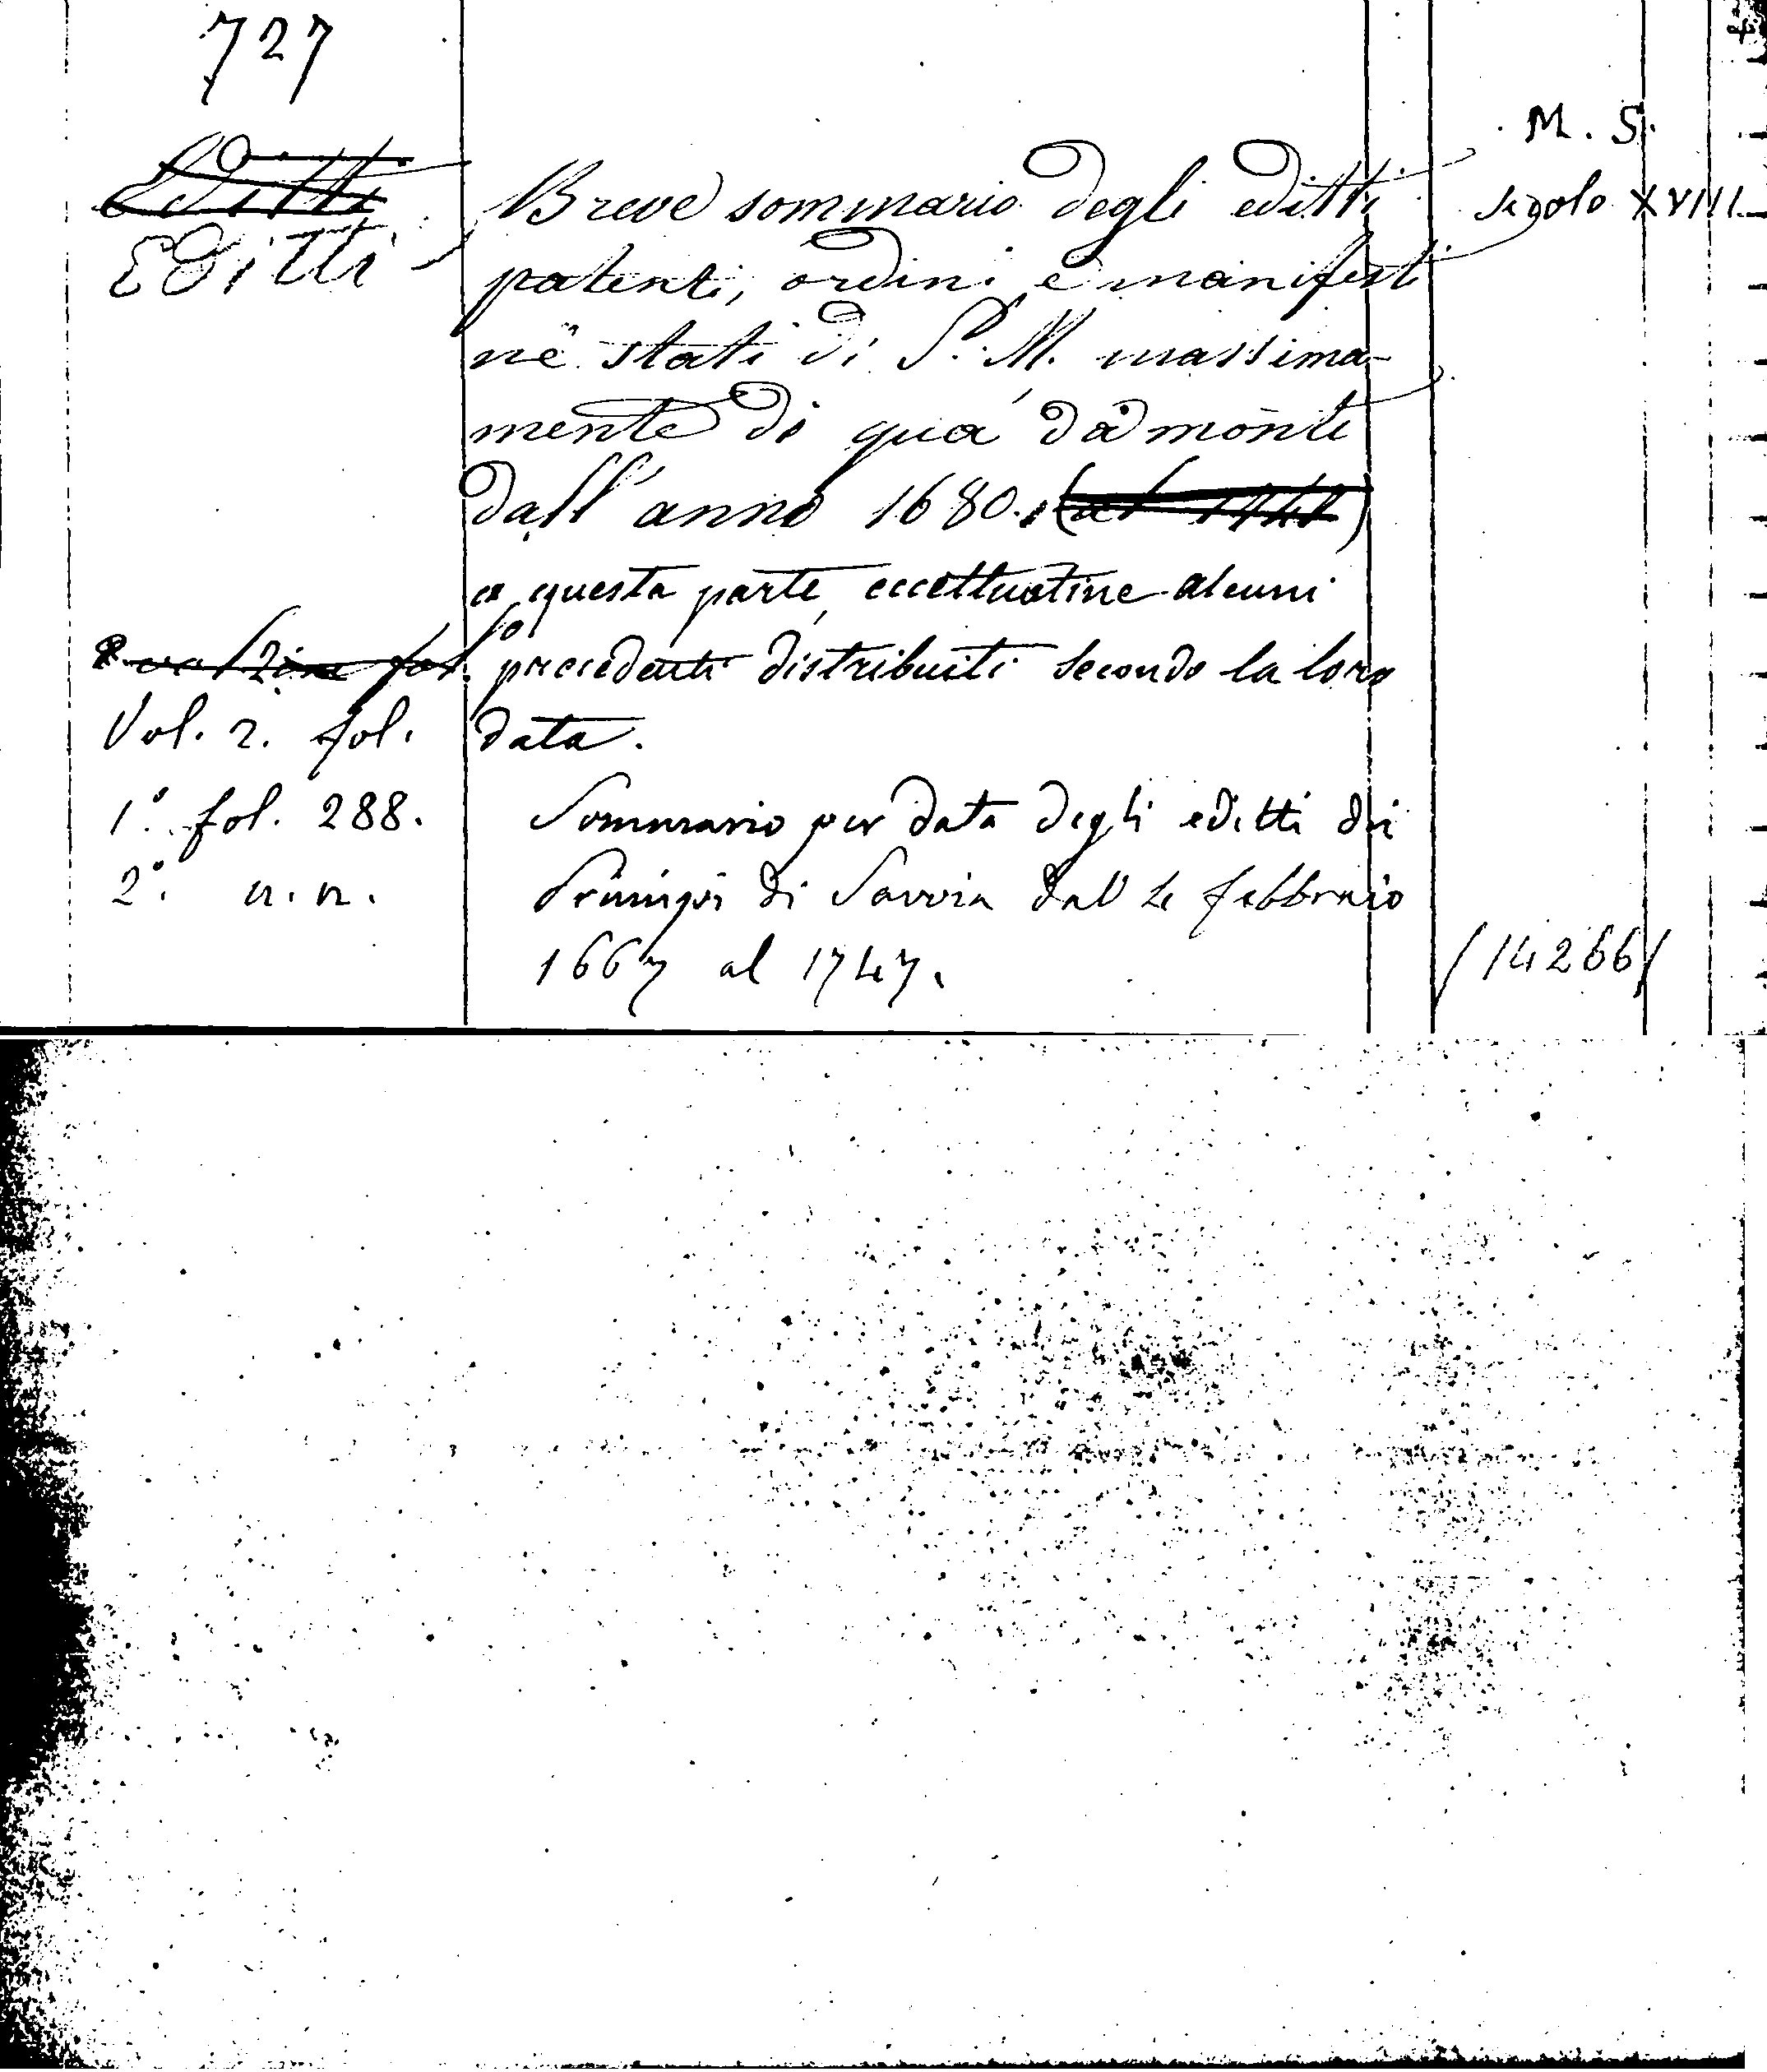 727
M. S.
Editti
Breve sommario degli editti
secolo XVIII
Editti
patenti, ordini e manifesti
ne stati di S. M. massima-
mente di quà da monti
dall'anno 1680. (al 1747)
a questa parte, eccettuatine alcuni
fol. precedenti distribuiti secondo la loro
Vol. 2. fol. data.
1°. fol. 288. Sommario per data degli editti dei
2°. n. n. Principi di Savoia dall 4 febbraio
1667 al 1747. (14266)